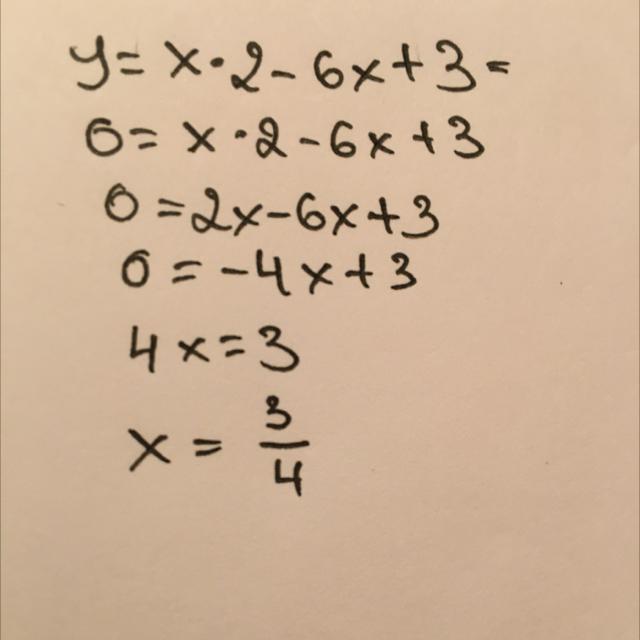 y = x · 2 - 6x + 3 =
0 = x · 2 - 6x + 3
0 = 2x - 6x + 3
0 = -4x + 3
4x = 3
x = 3/4